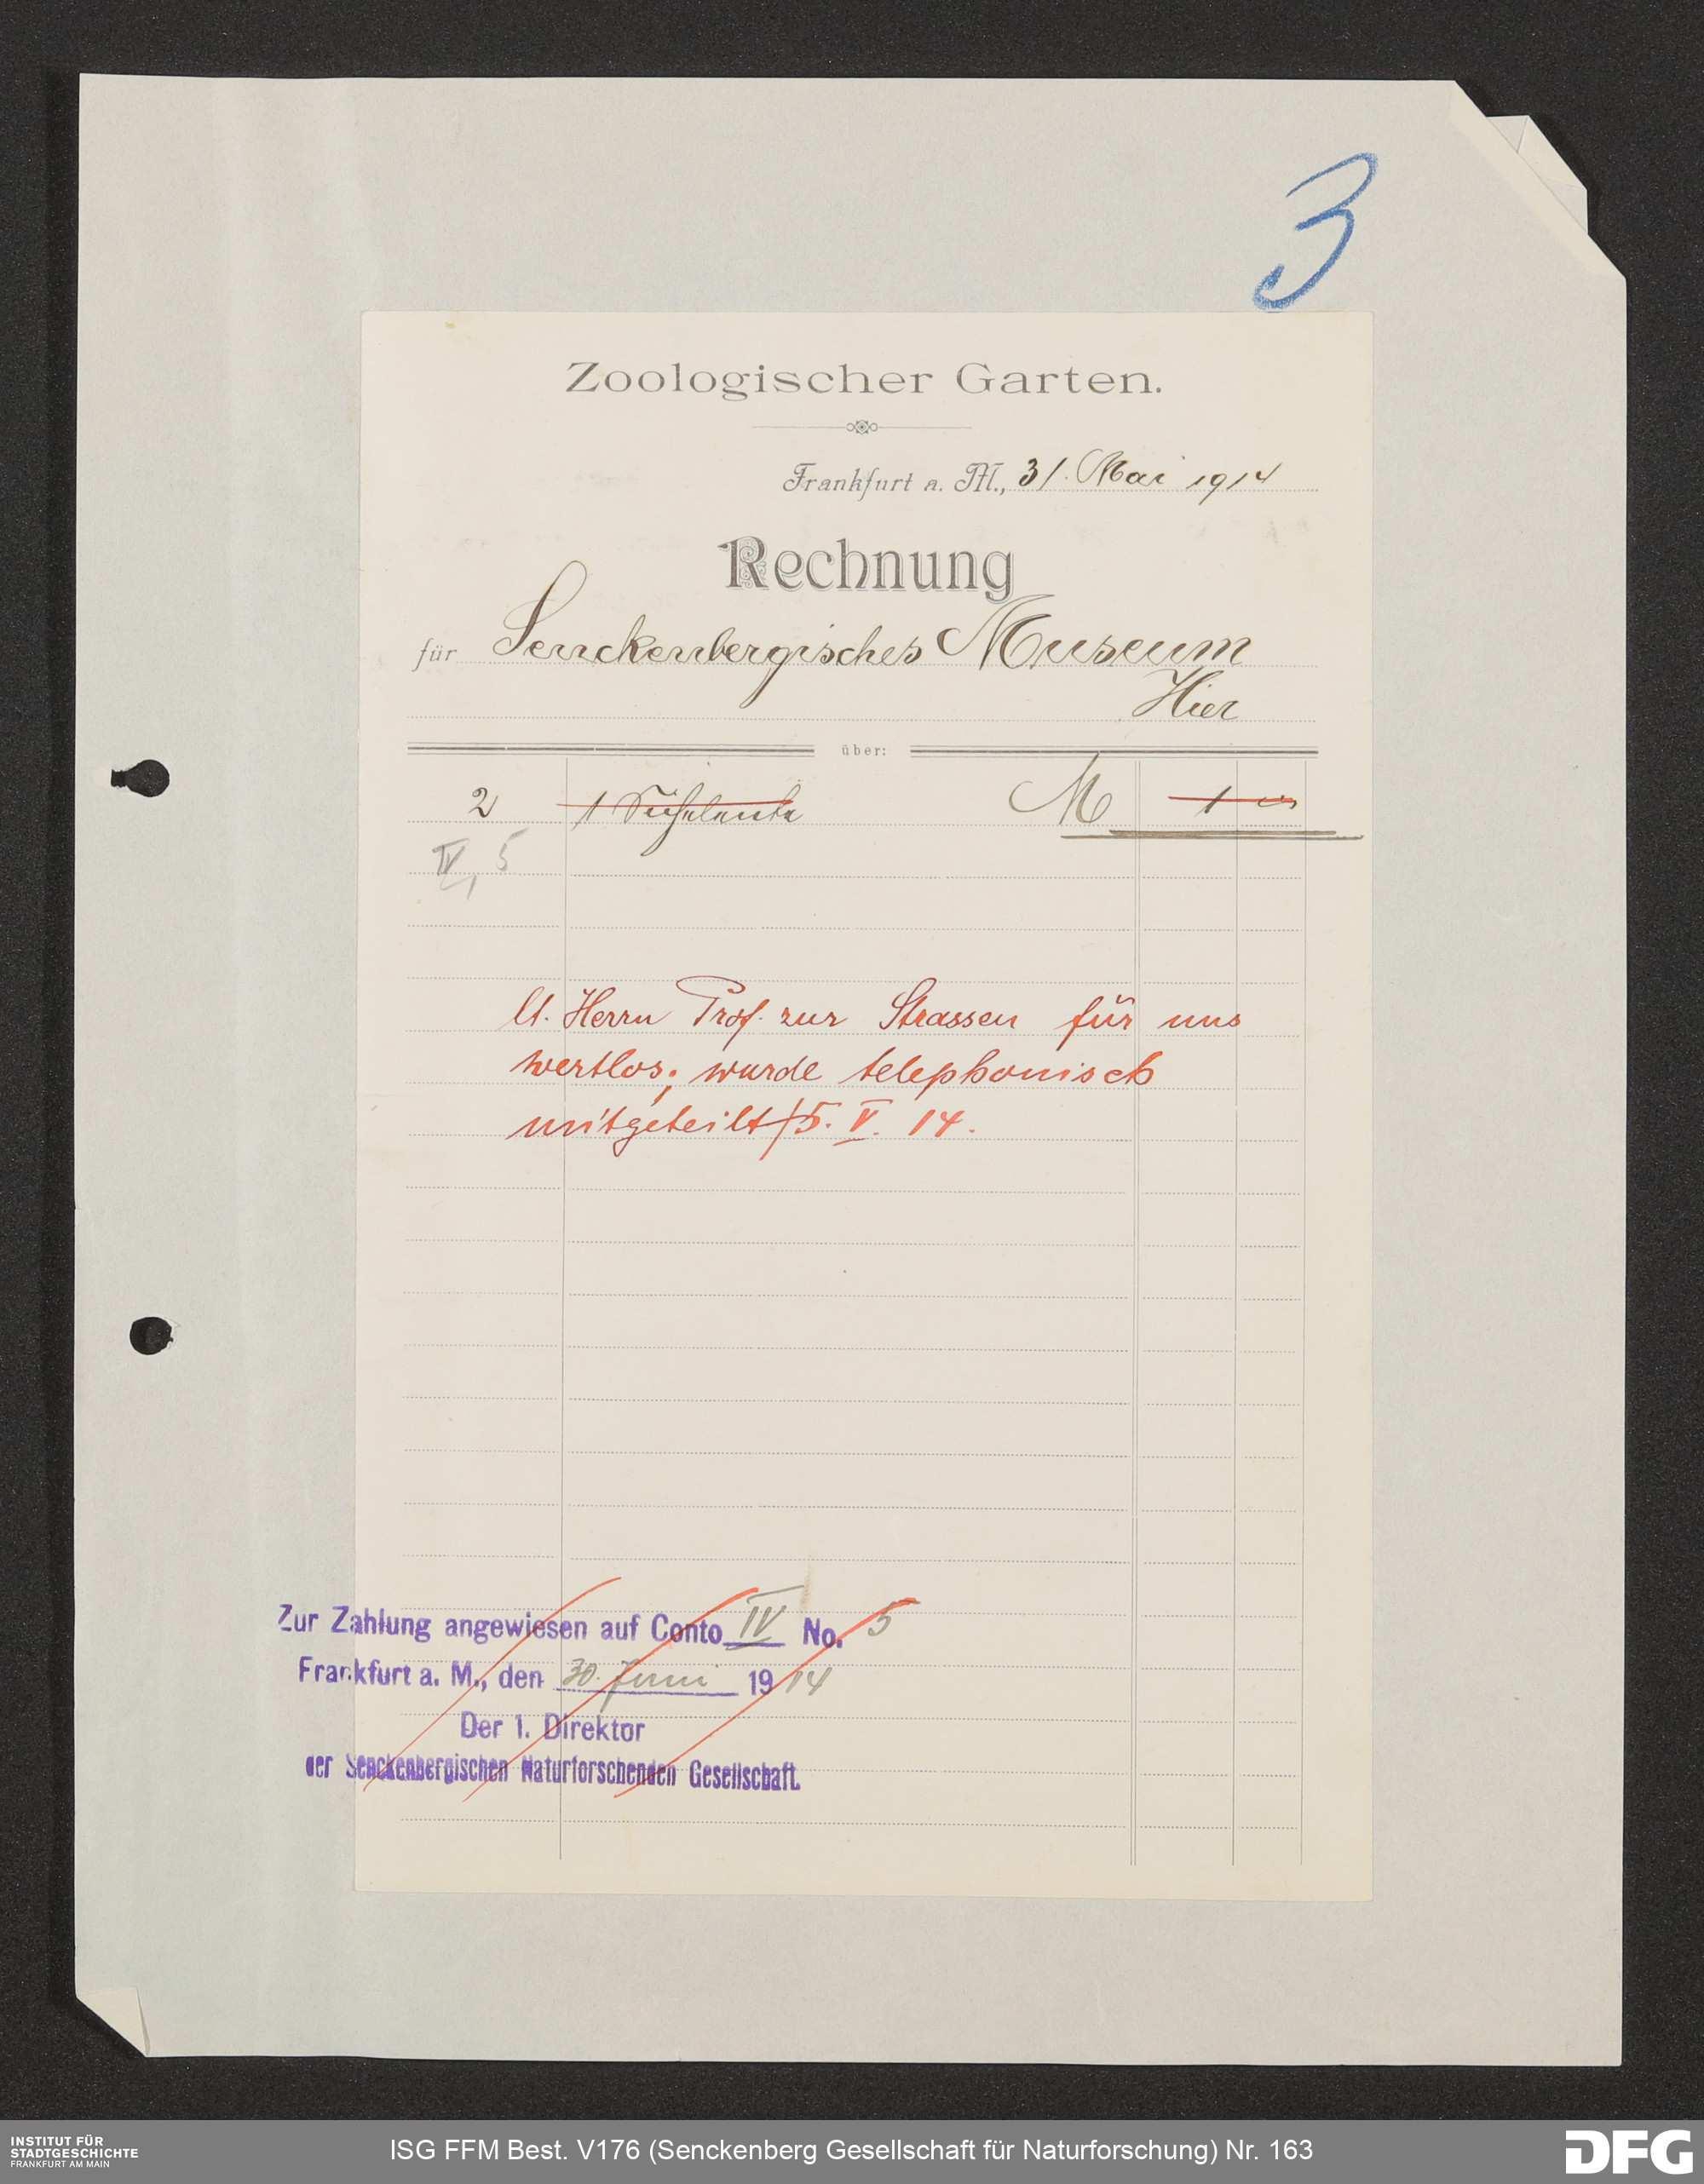 3
Zoologischer Garten.
Frankfurt a. M., 31. Mai 1914
Rechnung
für Senckenbergisches Museum
Hier
über:
2 1 M 1
IV, 5
lt. Herrn Prof. zur Strassen für uns
wertlos; wurde telephonisch
mitgeteilt 5. V. 14.
Zur Zahlung angewiesen auf Conto IV No. 5
Frankfurt a. M., den 30. Juni 1914
Der 1. Direktor
der Senckenbergischen Naturforschenden Gesellschaft.
INSTITUT FÜR
STADTGESCHICHTE
FRANKFURT AM MAIN
ISG FFM Best. V176 (Senckenberg Gesellschaft für Naturforschung) Nr. 163
DFG